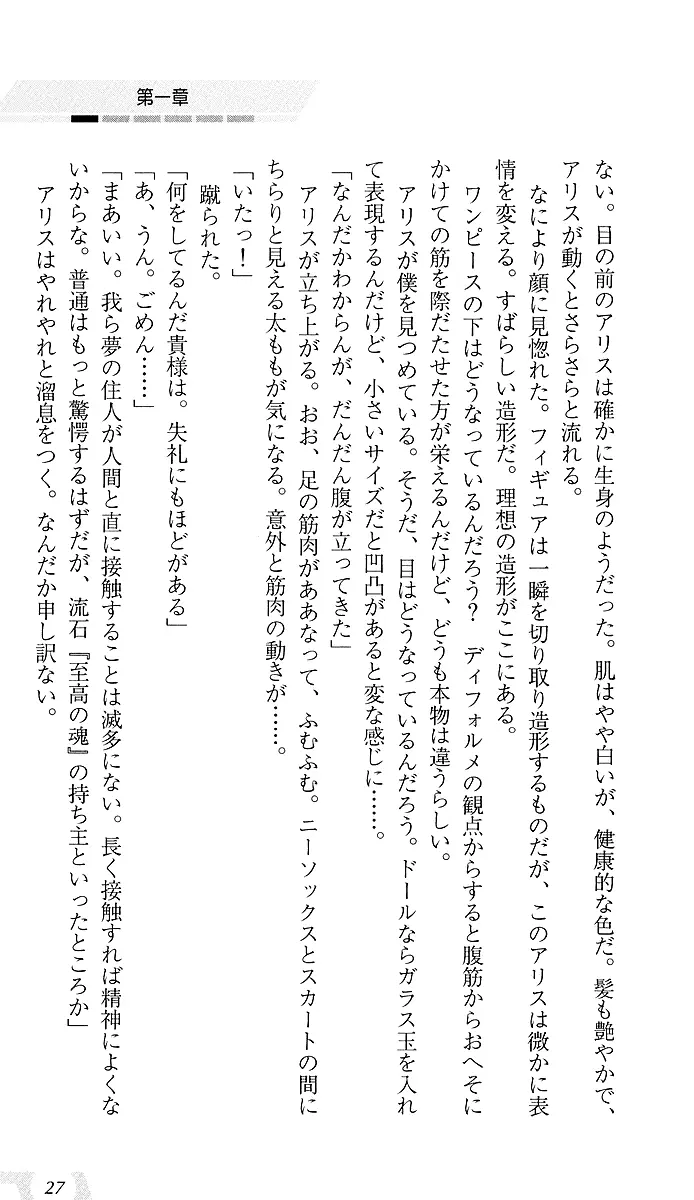 第一章
ない。目の前のアリスは確かに生身のようだった。肌はやや白いが、健康的な色だ。髪も艶やかで、
アリスが動くとさらさらと流れる。
　なにより顔に見惚れた。フィギュアは一瞬を切り取り造形するものだが、このアリスは微かに表
情を変える。すばらしい造形だ。理想の造形がここにある。
　ワンピースの下はどうなっているんだろう？　ディフォルメの観点からすると腹筋からおへそに
かけての筋を際だたせた方が栄えるんだけど、どうも本物は違うらしい。
　アリスが僕を見つめている。そうだ、目はどうなっているんだろう。ドールならガラス玉を入れ
て表現するんだけど、小さいサイズだと凹凸があると変な感じに……。
「なんだかわからんが、だんだん腹が立ってきた」
　アリスが立ち上がる。おお、足の筋肉がああなって、ふむふむ。ニーソックスとスカートの間に
ちらりと見える太ももが気になる。意外と筋肉の動きが……。
「いたっ！」
　蹴られた。
「何をしてるんだ貴様は。失礼にもほどがある」
「あ、うん。ごめん……」
「まあいい。我ら夢の住人が人間と直に接触することは滅多にない。長く接触すれば精神によくな
いからな。普通はもっと驚愕するはずだが、流石『至高の魂』の持ち主といったところか」
　アリスはやれやれと溜息をつく。なんだか申し訳ない。
27